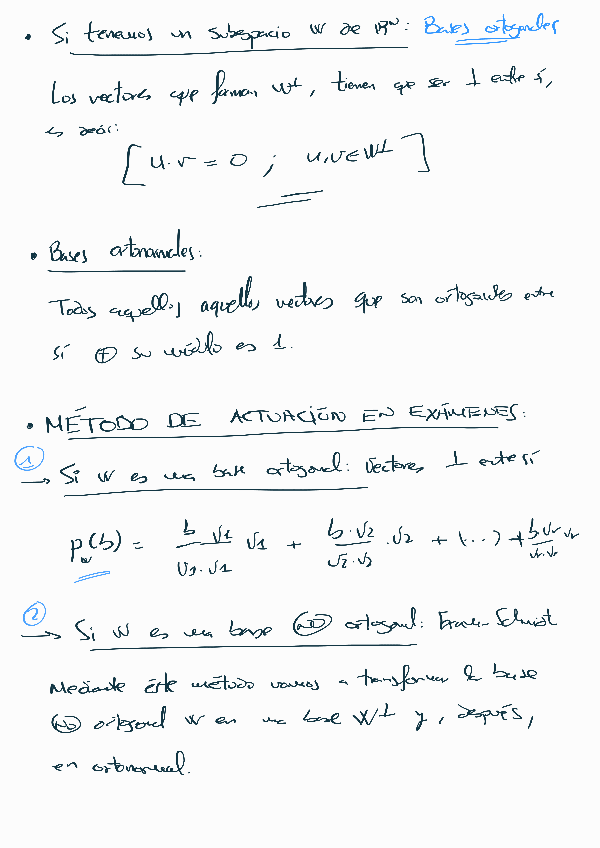 • Si tenemos un subespacio W de ℝⁿ: Bases ortogonales
Los vectores que forman W⊥, tienen que ser ⊥ entre sí,
es decir:
[u·v = 0 ; u,v ∈ W⊥]
• Bases ortonormales:
Todos aquellos aquellos vectores que son ortogonales entre
sí ⊕ su módulo es 1.
• MÉTODO DE ACTUACIÓN EN EXÁMENES:
①
→ Si W es una base ortogonal: Vectores ⊥ entre sí
P_w(b) = (b v1)/(v1·v1) v1 + (b·v2)/(v2·v2) · v2 + (...) + (b vr)/(vr·vr) vr
②
→ Si W es una base NO ortogonal: Gram-Schmidt
Mediante éste método vamos a transformar la base
NO ortogonal W en una base W⊥ y, después,
en ortonormal.